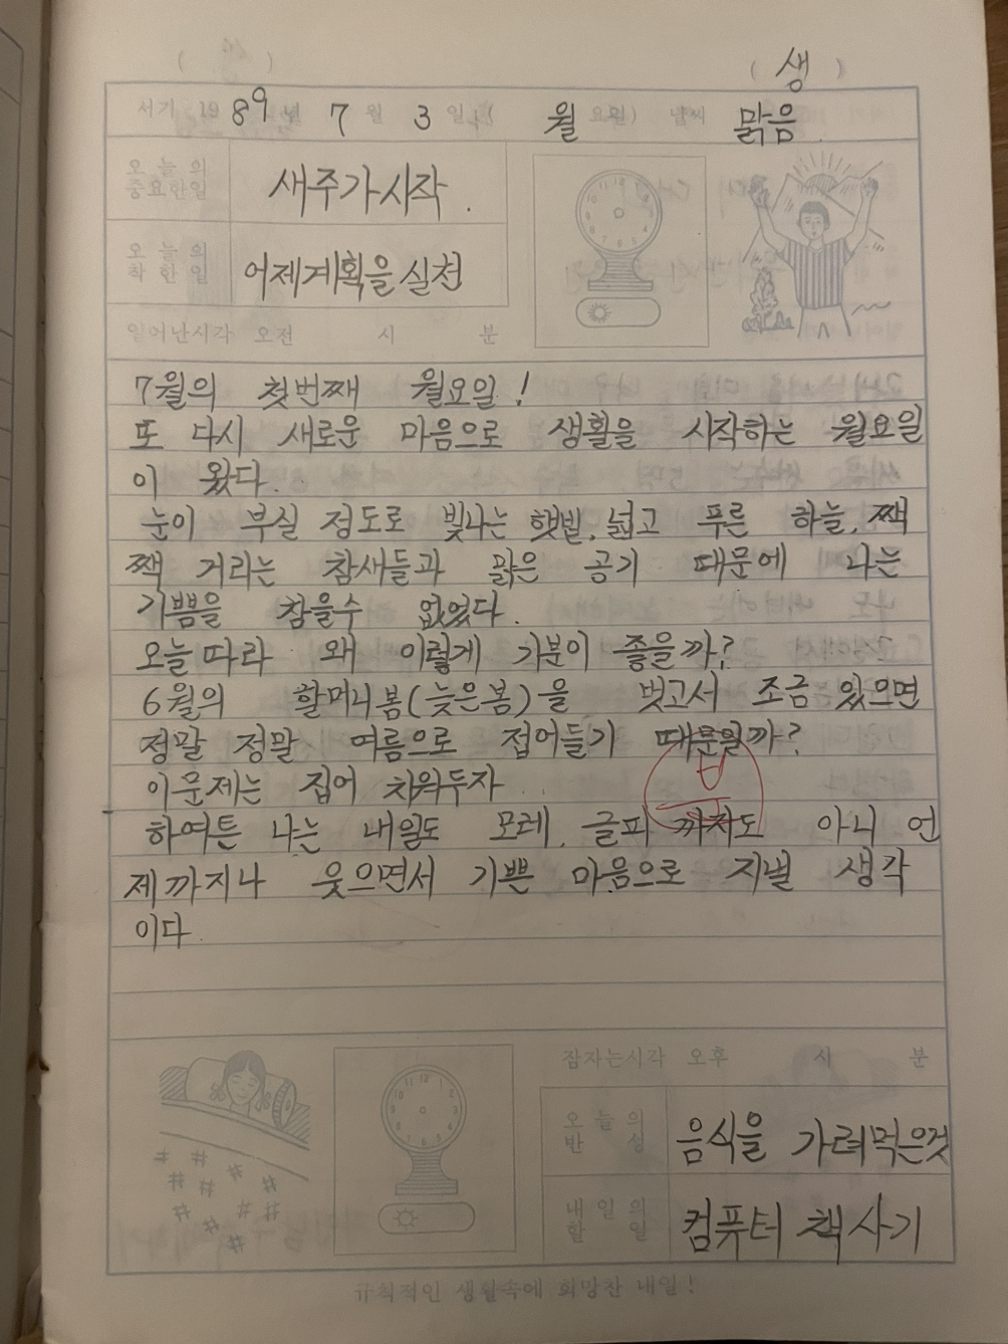 ( 생 )
서기 1989년 7월 3일 ( 월 요일) 날씨 맑음
오늘의 중요한일 새주가시작.
오늘의 착한일 어제계획을실천
일어난시각 오전 시 분
7월의 첫번째 월요일!
또 다시 새로운 마음으로 생활을 시작하는 월요일
이 왔다.
눈이 부실 정도로 빛나는 햇빛, 넓고 푸른 하늘, 짹
짹 거리는 참새들과 맑은 공기 때문에 나는
기쁨을 참을수 없었다.
오늘따라 왜 이렇게 기분이 좋을까?
6월의 할머니봄(늦은봄)을 벗고서 조금 있으면
정말 정말 여름으로 접어들기 때문일까?
이문제는 집어 치워두자
하여튼 나는 내일도 모레, 글피 까지도 아니 언
제까지나 웃으면서 기쁜 마음으로 지낼 생각
이다.
잠자는시각 오후 시 분
오늘의 반성 음식을 가려먹은것
내일의 할일 컴퓨터 책사기
규칙적인 생활속에 희망찬 내일!